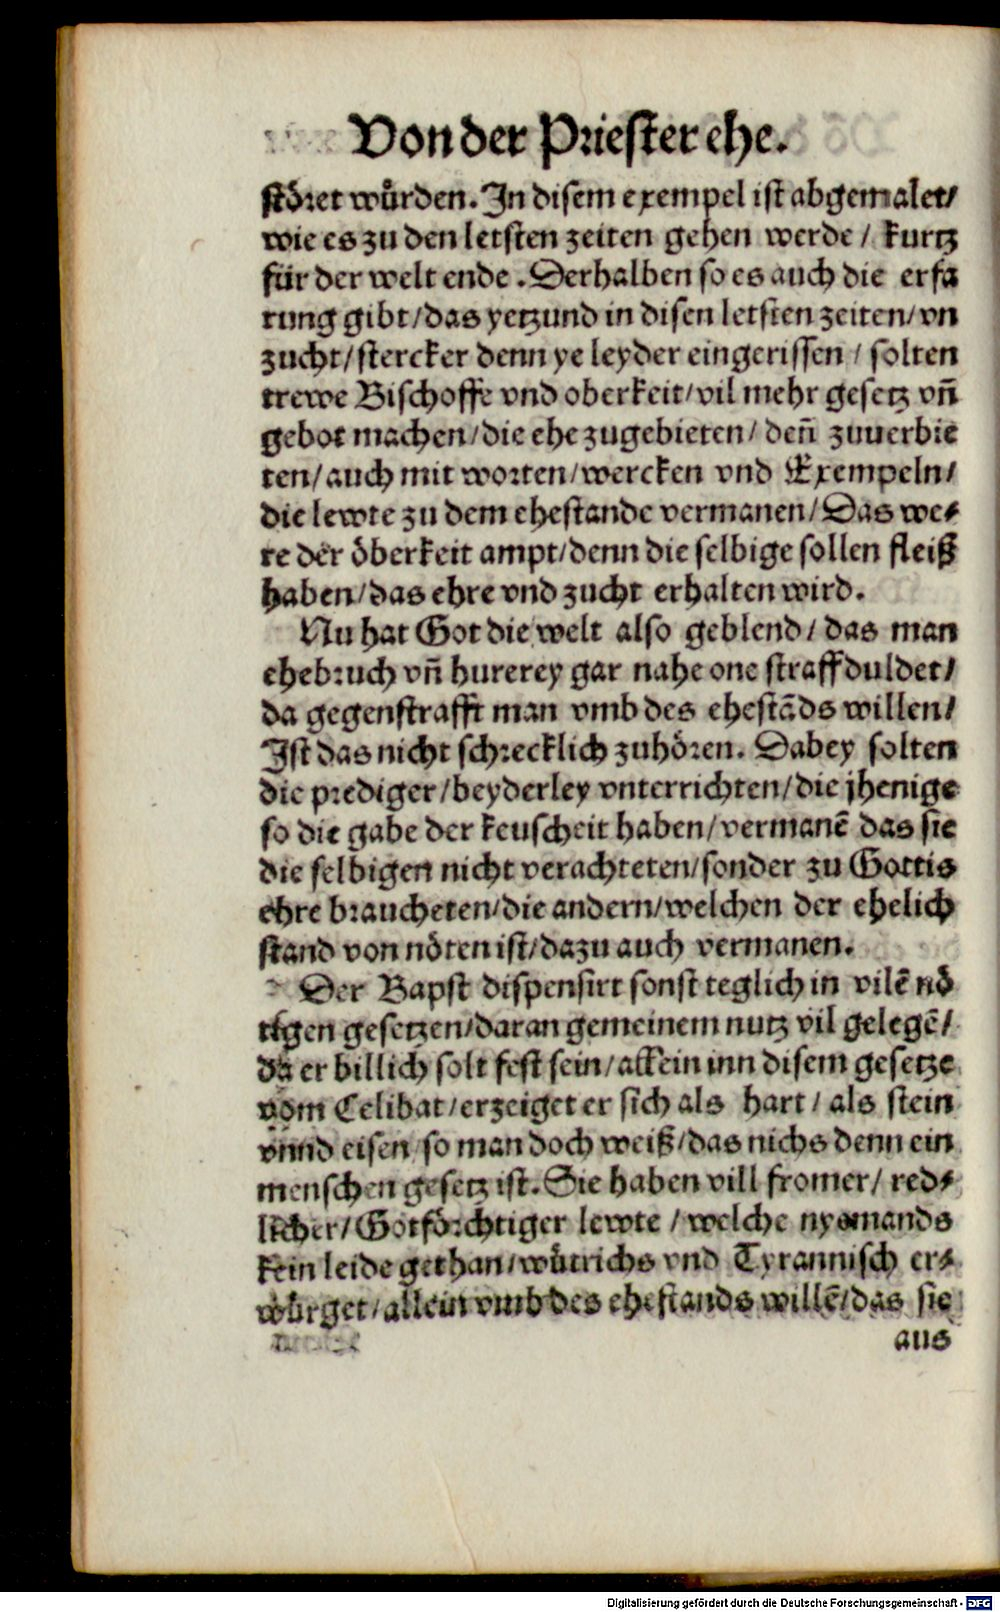 Von der Priester ehe.
störet würden. In disem exempel ist abgemalet/
wie es zu den letsten zeiten gehen werde / kurtz
für der welt ende . Derhalben so es auch die erfa
rung gibt/das yetzund in disen letsten zeiten/vn
zucht/stercker denn ye leyder eingerissen / solten
trewe Bischoffe vnd oberkeit/vil mehr gesetz vñ
gebot machen/die ehe zugebieten/ deñ zuuerbie
ten/auch mit worten/wercken vnd Exempeln/
die lewte zu dem ehestande vermanen/Das we-
re der öberkeit ampt/denn die selbige sollen fleiß
haben/das ehre vnd zucht erhalten wird.
Nu hat Got die welt also geblend/ das man
ehebruch vñ hurerey gar nahe one straff duldet/
da gegen strafft man vmb des ehestāds willen/
Ist das nicht schrecklich zuhören. Dabey solten
die prediger/beyderley vnterrichten/die jhenige
so die gabe der keuscheit haben/vermanē das sie
die selbigen nicht verachteten/sonder zu Gottis
ehre braucheten/die andern/welchen der ehelich
stand von nöten ist/dazu auch vermanen.
Der Bapst dispensirt sonst teglich in vilē nö
tigen gesetzen/daran gemeinem nutz vil gelegē/
da er billich solt fest sein/allein inn disem gesetze
vom Celibat/erzeiget er sich als hart/ als stein
vnnd eisen so man doch weiß/das nichs denn ein
menschen gesetz ist. Sie haben vill fromer/ red-
licher/Gotförchtiger lewte / welche nyemands
kein leide gethan/wütrichs vnd Tyrannisch er-
würget/allein vmb des ehestands willē/das sie
aus
Digitalisierung gefördert durch die Deutsche Forschungsgemeinschaft - DFG